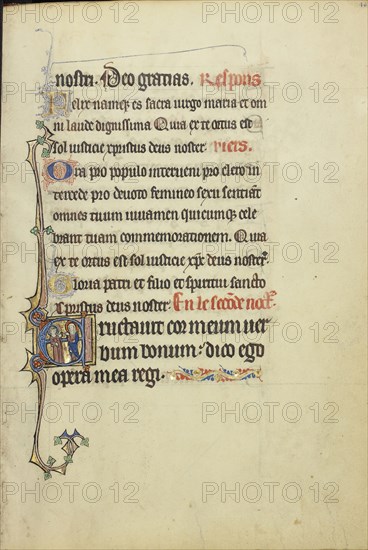 nostri. Deo gratias. Respons
Felix namque es sacra virgo maria et om
ni laude dignissima Quia ex te ortus est
sol iusticie xpistus deus noster. vers.
Ora pro populo interueni pro clero in
tercede pro deuoto femineo sexu sentiant
omnes tuum iuuamen quicumque cele
brant tuam commemorationem. Quia
ex te ortus est sol iusticie xpc deus noster.
Gloria patri et filio et spiritui sancto
xpistus deus noster. En le seconde noct.
Eructauit cor meum uer
bum bonum: dico ego
opera mea regi.
PHOTO 12